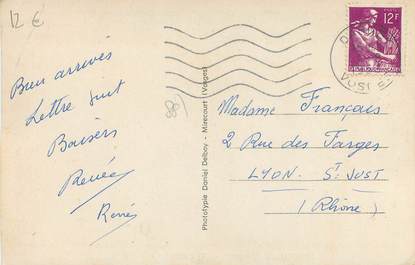 12 €
Bien arrivés
Lettre suit
Baisers
Renée
René
88
Phototypie Daniel Delboy - Mirecourt (Vosges)
12F
VOSGES
Madame Français
2 Rue des Farges
LYON ST JUST
(Rhône)